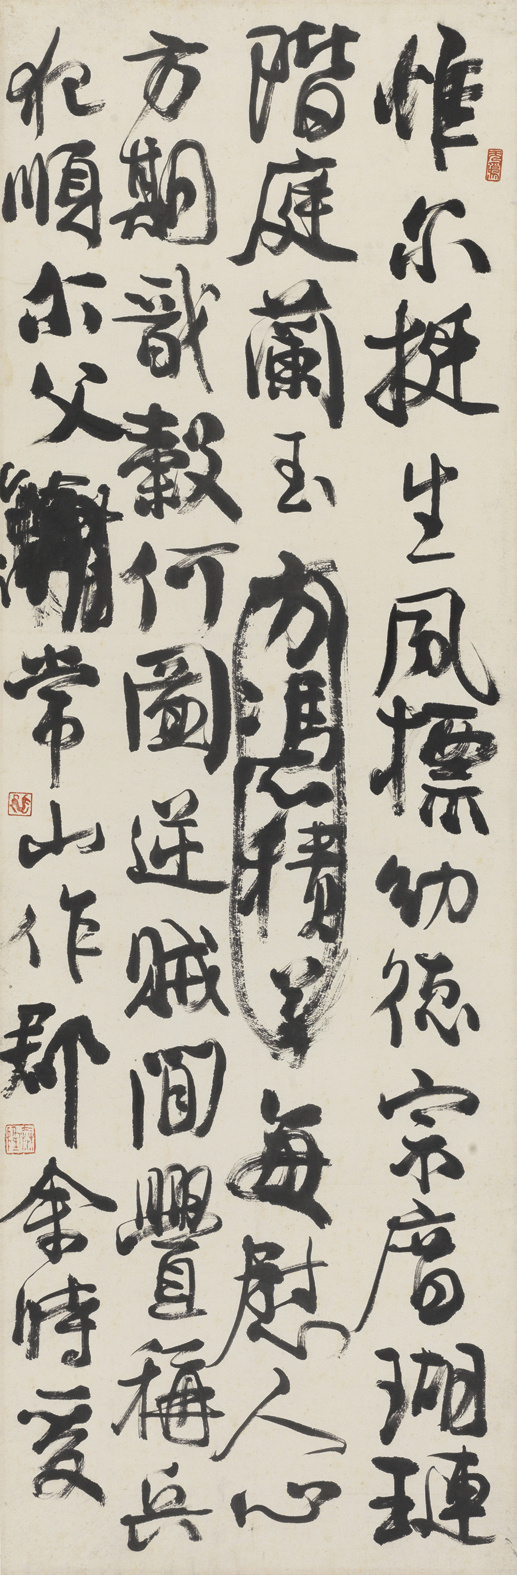 惟尔挺生夙標幼德宗庿瑚璉
階庭蘭玉方憑積善每慰人心
方期戩穀何圖逆賊間舋稱兵
犯順尔父常山作郡余時受